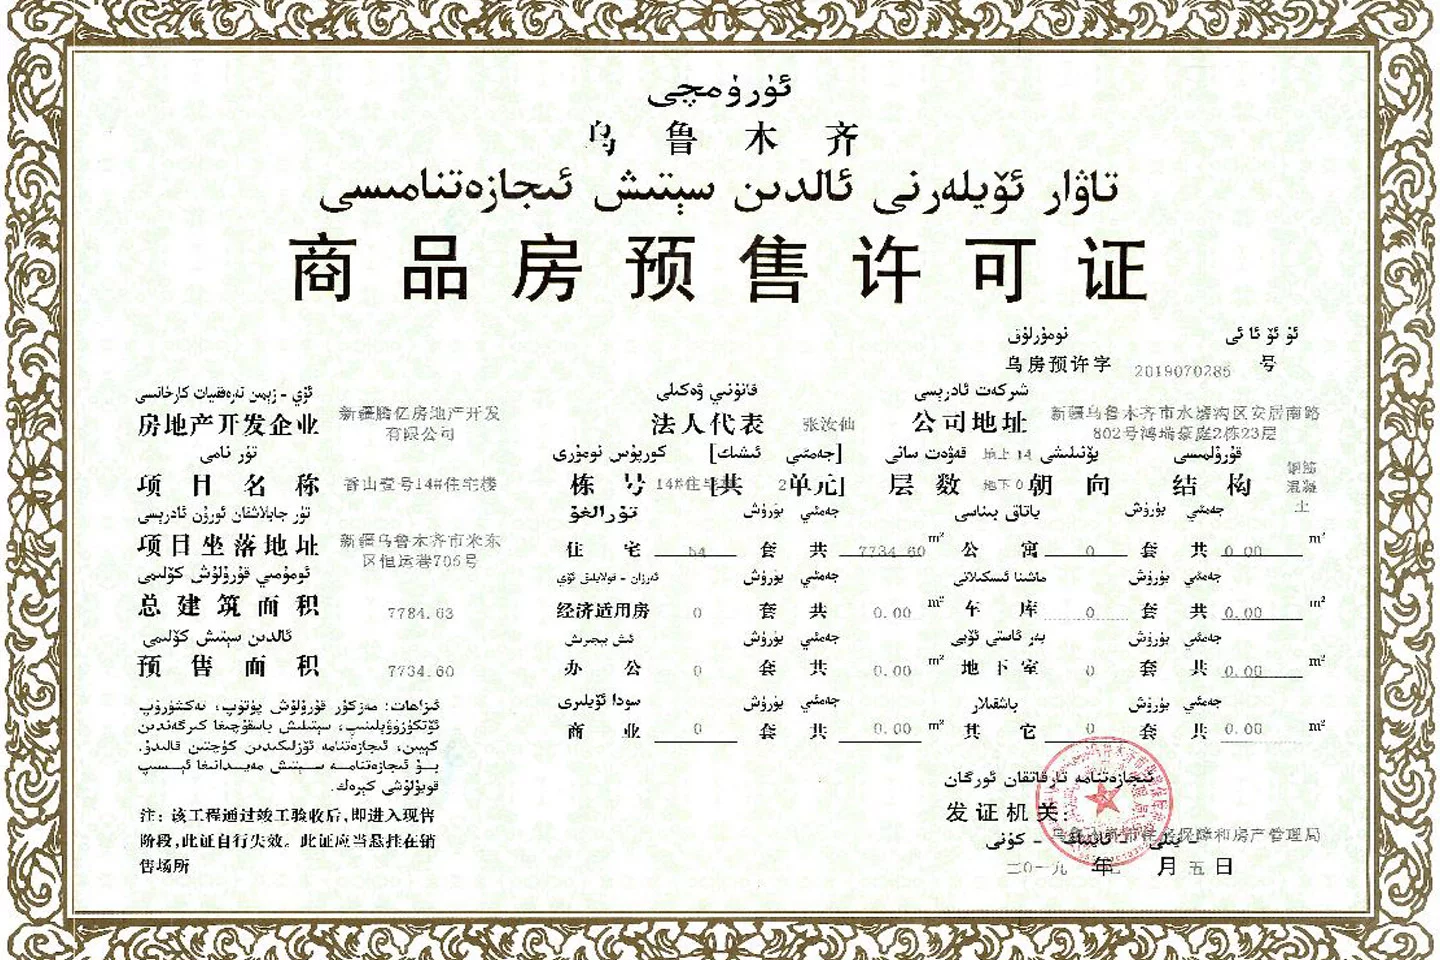 ئۈرۈمچى
乌鲁木齐
تاۋار ئۆيلەرنى ئالدىن سېتىش ئىجازەتنامىسى
商品房预售许可证
ئۈ ئۆ ئا ئى نومۇرلۇق
乌房预许字 2019070286 号
ئۆي - زېمىن تەرەققىيات كارخانىسى قانۇنىي ۋەكىلى شىركەت ئادرېسى
房地产开发企业 新疆腾亿房地产开发有限公司 法人代表 张汝仙 公司地址 新疆乌鲁木齐市水磨沟区安居南路
802号鸿瑞豪庭2栋23层
تۈر نامى كورپۇس نومۇرى [جەمئىي ئىشىك] قەۋەت سانى 地上 14 يۆنىلىشى قۇرۇلمىسى
项目名称 香山壹号14#住宅楼 栋号 14#住宅 [共 2 单元] 层数 地下 0 朝向 结构 钢筋混凝土
تۈر جايلاشقان ئورۇن ئادرېسى تۇرالغۇ جەمئىي يۈرۈش ياتاق بىناسى جەمئىي يۈرۈش
项目坐落地址 新疆乌鲁木齐市米东区恒运巷705号 住宅 54 套 共 7734.60 m² 公寓 0 套 共 0.00 m²
ئومۇمىي قۇرۇلۇش كۆلىمى ئەرزان - قولايلىق ئۆي جەمئىي يۈرۈش ماشىنا ئىسكىلاتى جەمئىي يۈرۈش
总建筑面积 7784.63 经济适用房 0 套 共 0.00 m² 车库 0 套 共 0.00 m²
ئالدىن سېتىش كۆلىمى ئىش بېجىرىش جەمئىي يۈرۈش يەر ئاستى ئۆيى جەمئىي يۈرۈش
预售面积 7734.60 办公 0 套 共 0.00 m² 地下室 0 套 共 0.00 m²
سودا ئۆيلىرى جەمئىي يۈرۈش باشقىلار جەمئىي يۈرۈش
商业 0 套 共 0.00 m² 其它 0 套 共 0.00 m²
ئىزاھات: مەزكۇر قۇرۇلۇش پۈتۈپ، تەكشۈرۈپ
ئۆتكۈزۈۋېلىنىپ، سېتىلىش باسقۇچىغا كىرگەندىن
كېيىن، ئىجازەتنامە ئۆزلىكىدىن كۈچتىن قالىدۇ.
بۇ ئىجازەتنامە سېتىش مەيدانىغا ئېسىپ
قويۇلۇشى كېرەك.
注: 该工程通过竣工验收后,即进入现售
阶段,此证自行失效。此证应当悬挂在销
售场所
ئىجازەتنامە تارقاتقان ئورگان
发证机关:
乌鲁木齐市住房保障和房产管理局
- يىلى - ئاينىڭ - كۈنى
二0一九 年 月 五 日